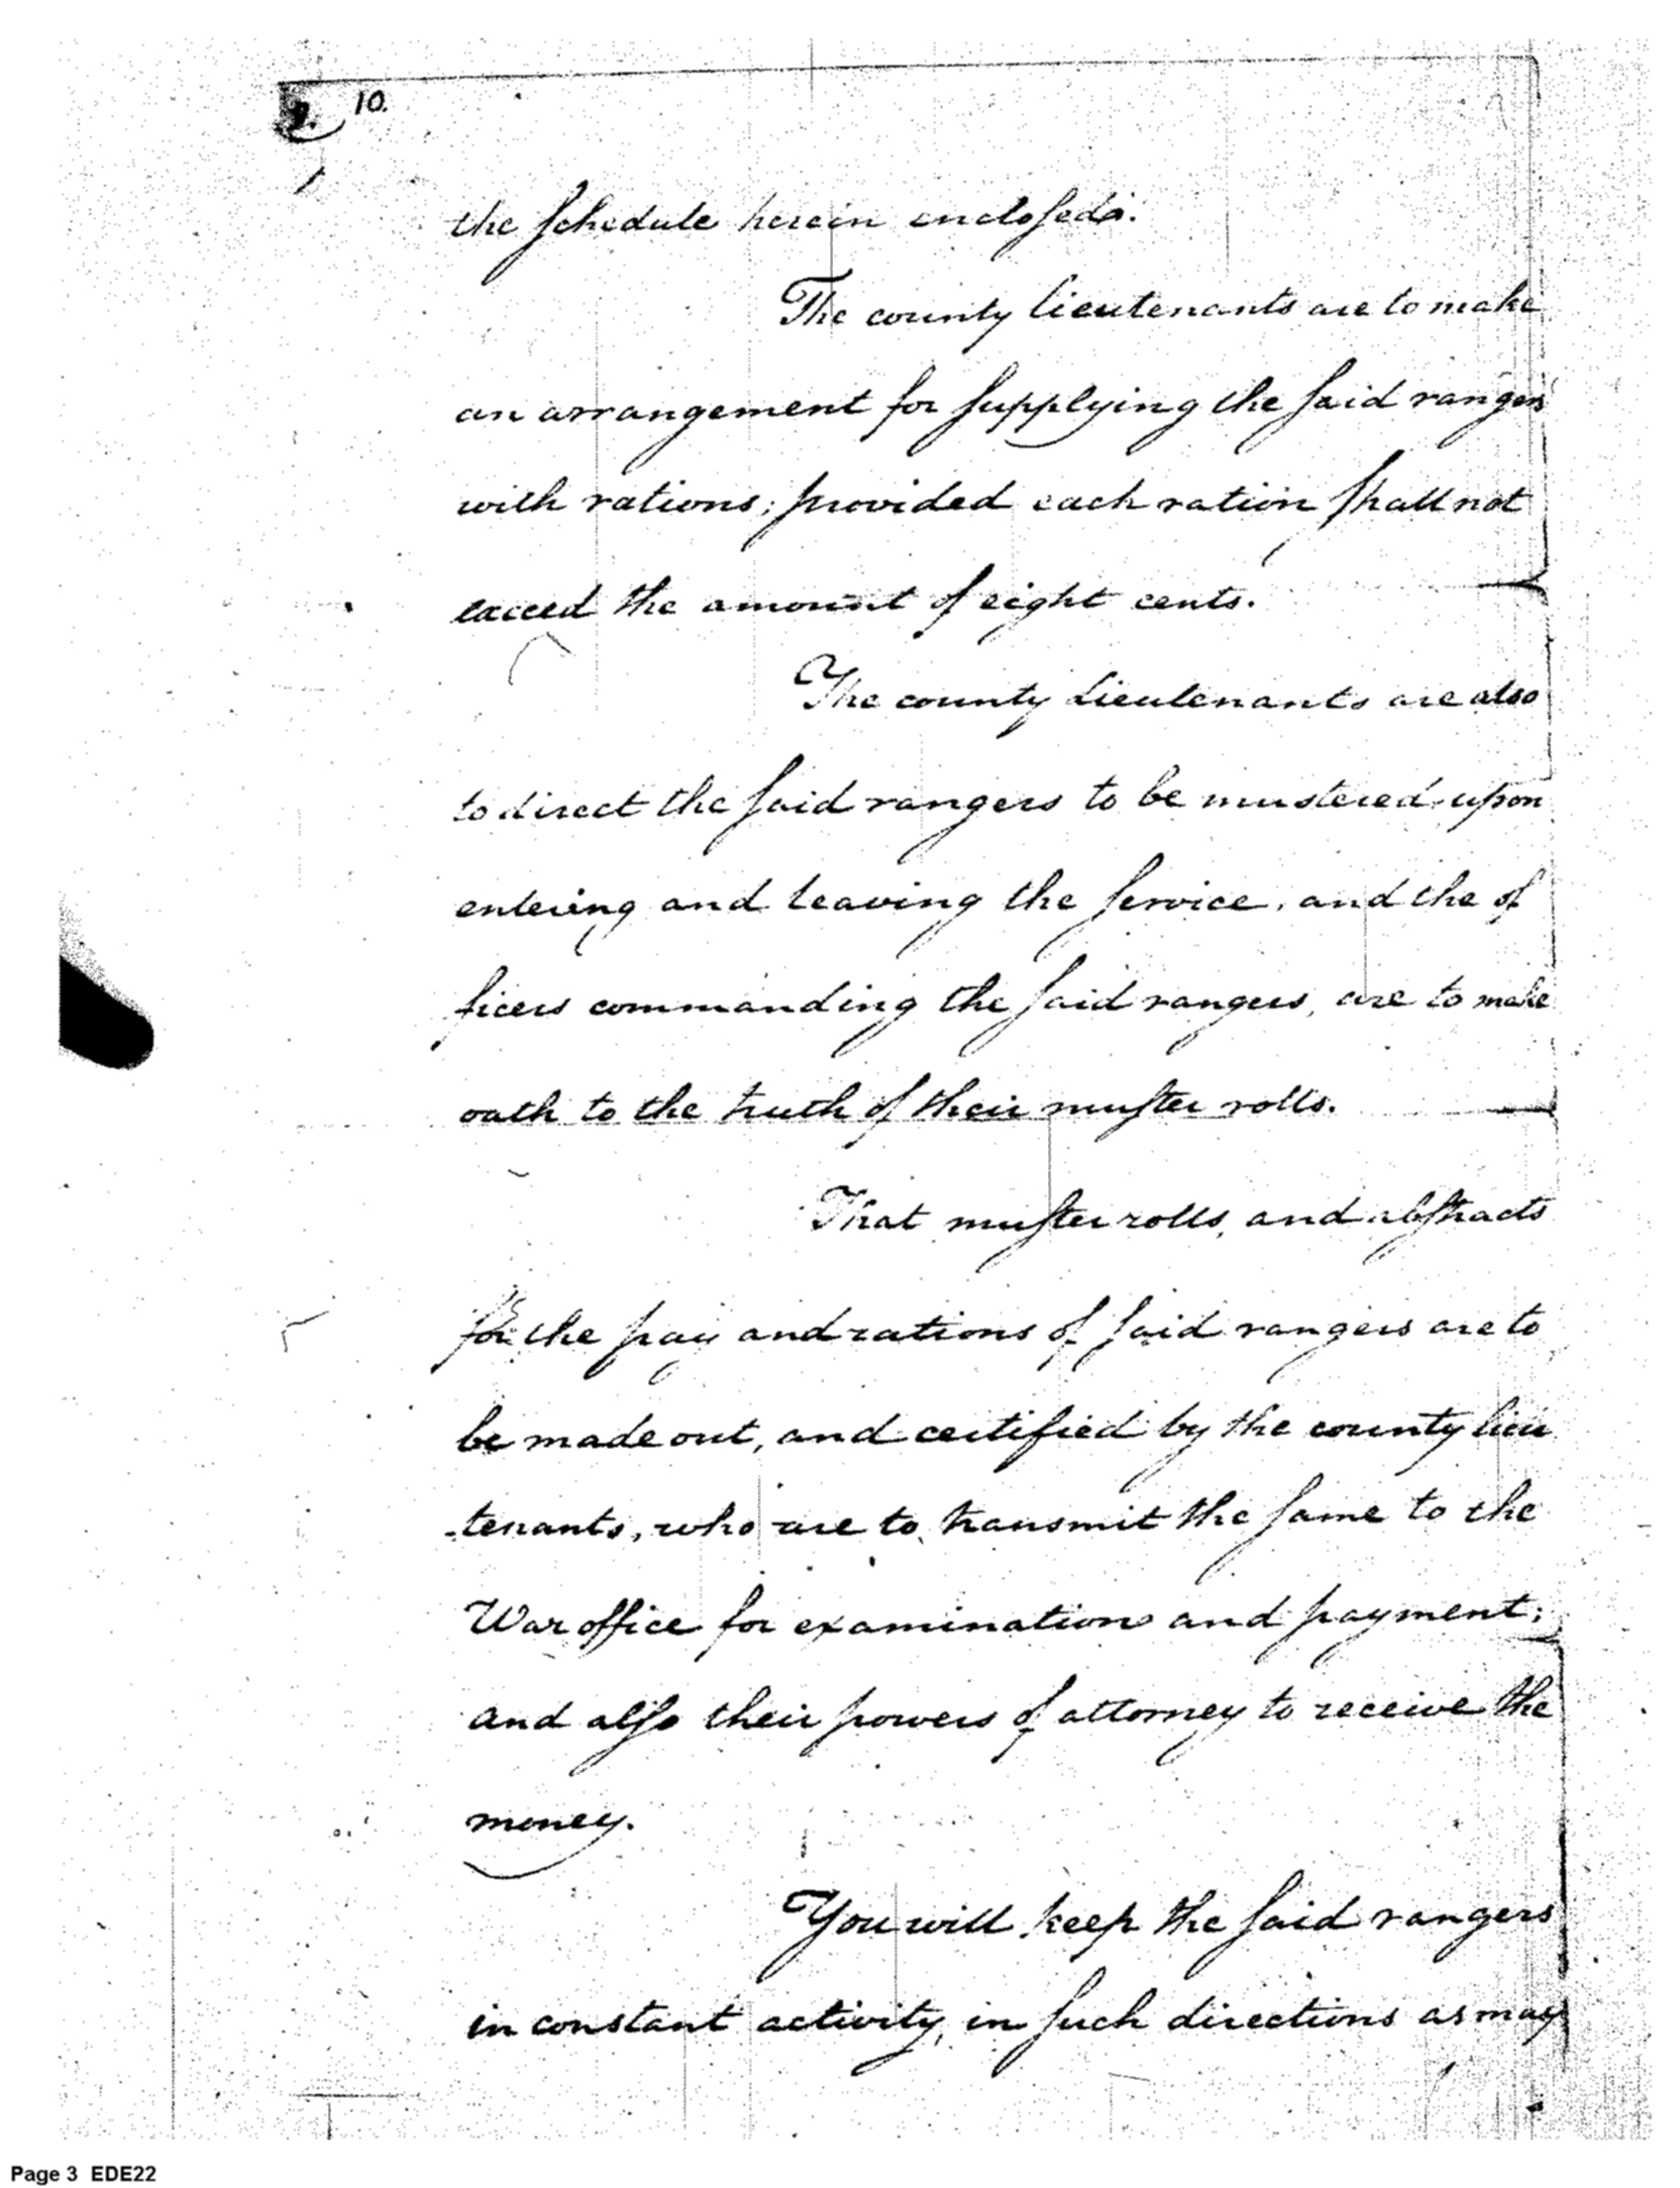 10.
the schedule herein enclosed.
The county lieutenants are to make
an arrangement for supplying the said rangers
with rations; provided each ration shall not
exceed the amount of eight cents.
The county Lieutenants are also
to direct the said rangers to be mustered, upon
entering and leaving the service, and the of
ficers commanding the said rangers, are to make
oath to the truth of their muster rolls.
That muster rolls, and abstracts
for the pay and rations of said rangers are to
be made out, and certified by the county lieu
-tenants, who are to transmit the same to the
War office for examination and payment;
and also their powers of attorney to receive the
money.
You will keep the said rangers
in constant activity, in such directions as may
Page 3 EDE22